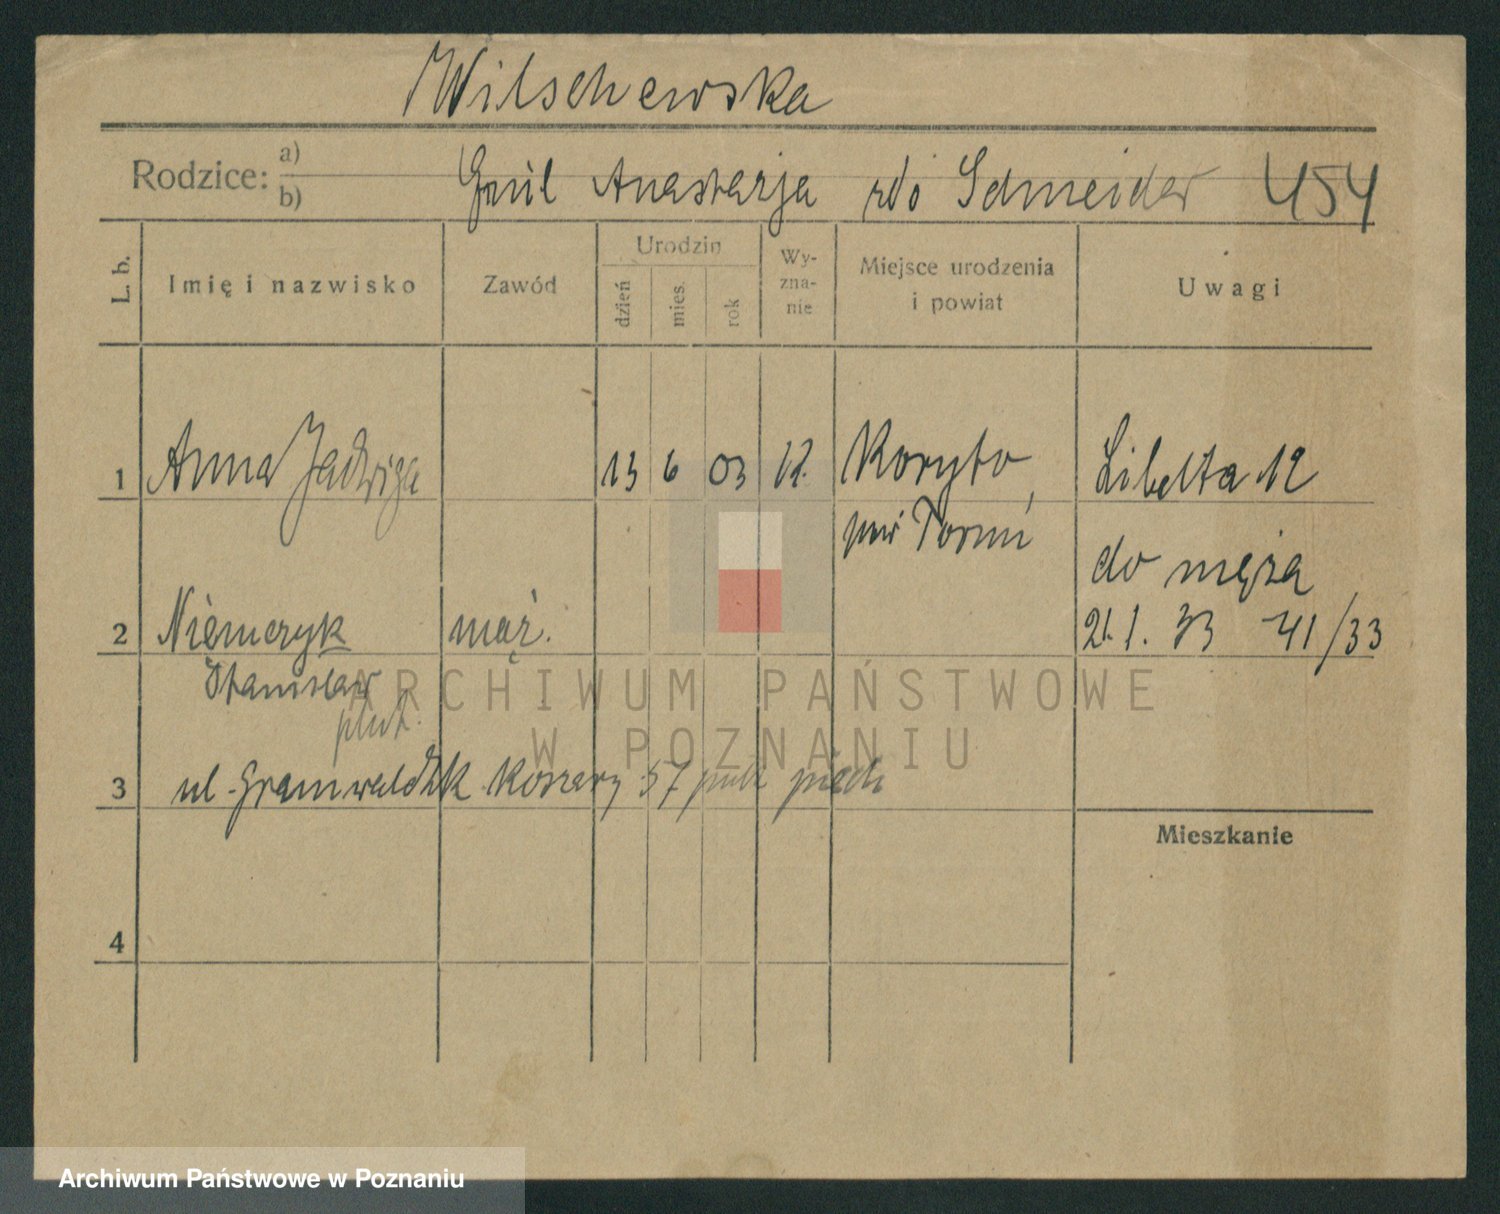 Wilschewska
Rodzice: a)
b)
Emil Anastazja Schneider 454
L. b. Imię i nazwisko Zawód Urodzin dzień mies. rok Wy-zna-nie Miejsce urodzenia i powiat Uwagi
1 Anna Jadwiga 13 6 03 Koryto, Libelta 12
pow Toruń
do męża
2 Niemczyk mąż. 21.1.33 41/33
Stanisław
plut.
3 ul. Grunwaldzk Koszary 57 pułk piech
Mieszkanie
4
ARCHIWUM PAŃSTWOWE
W POZNANIU
Archiwum Państwowe w Poznaniu